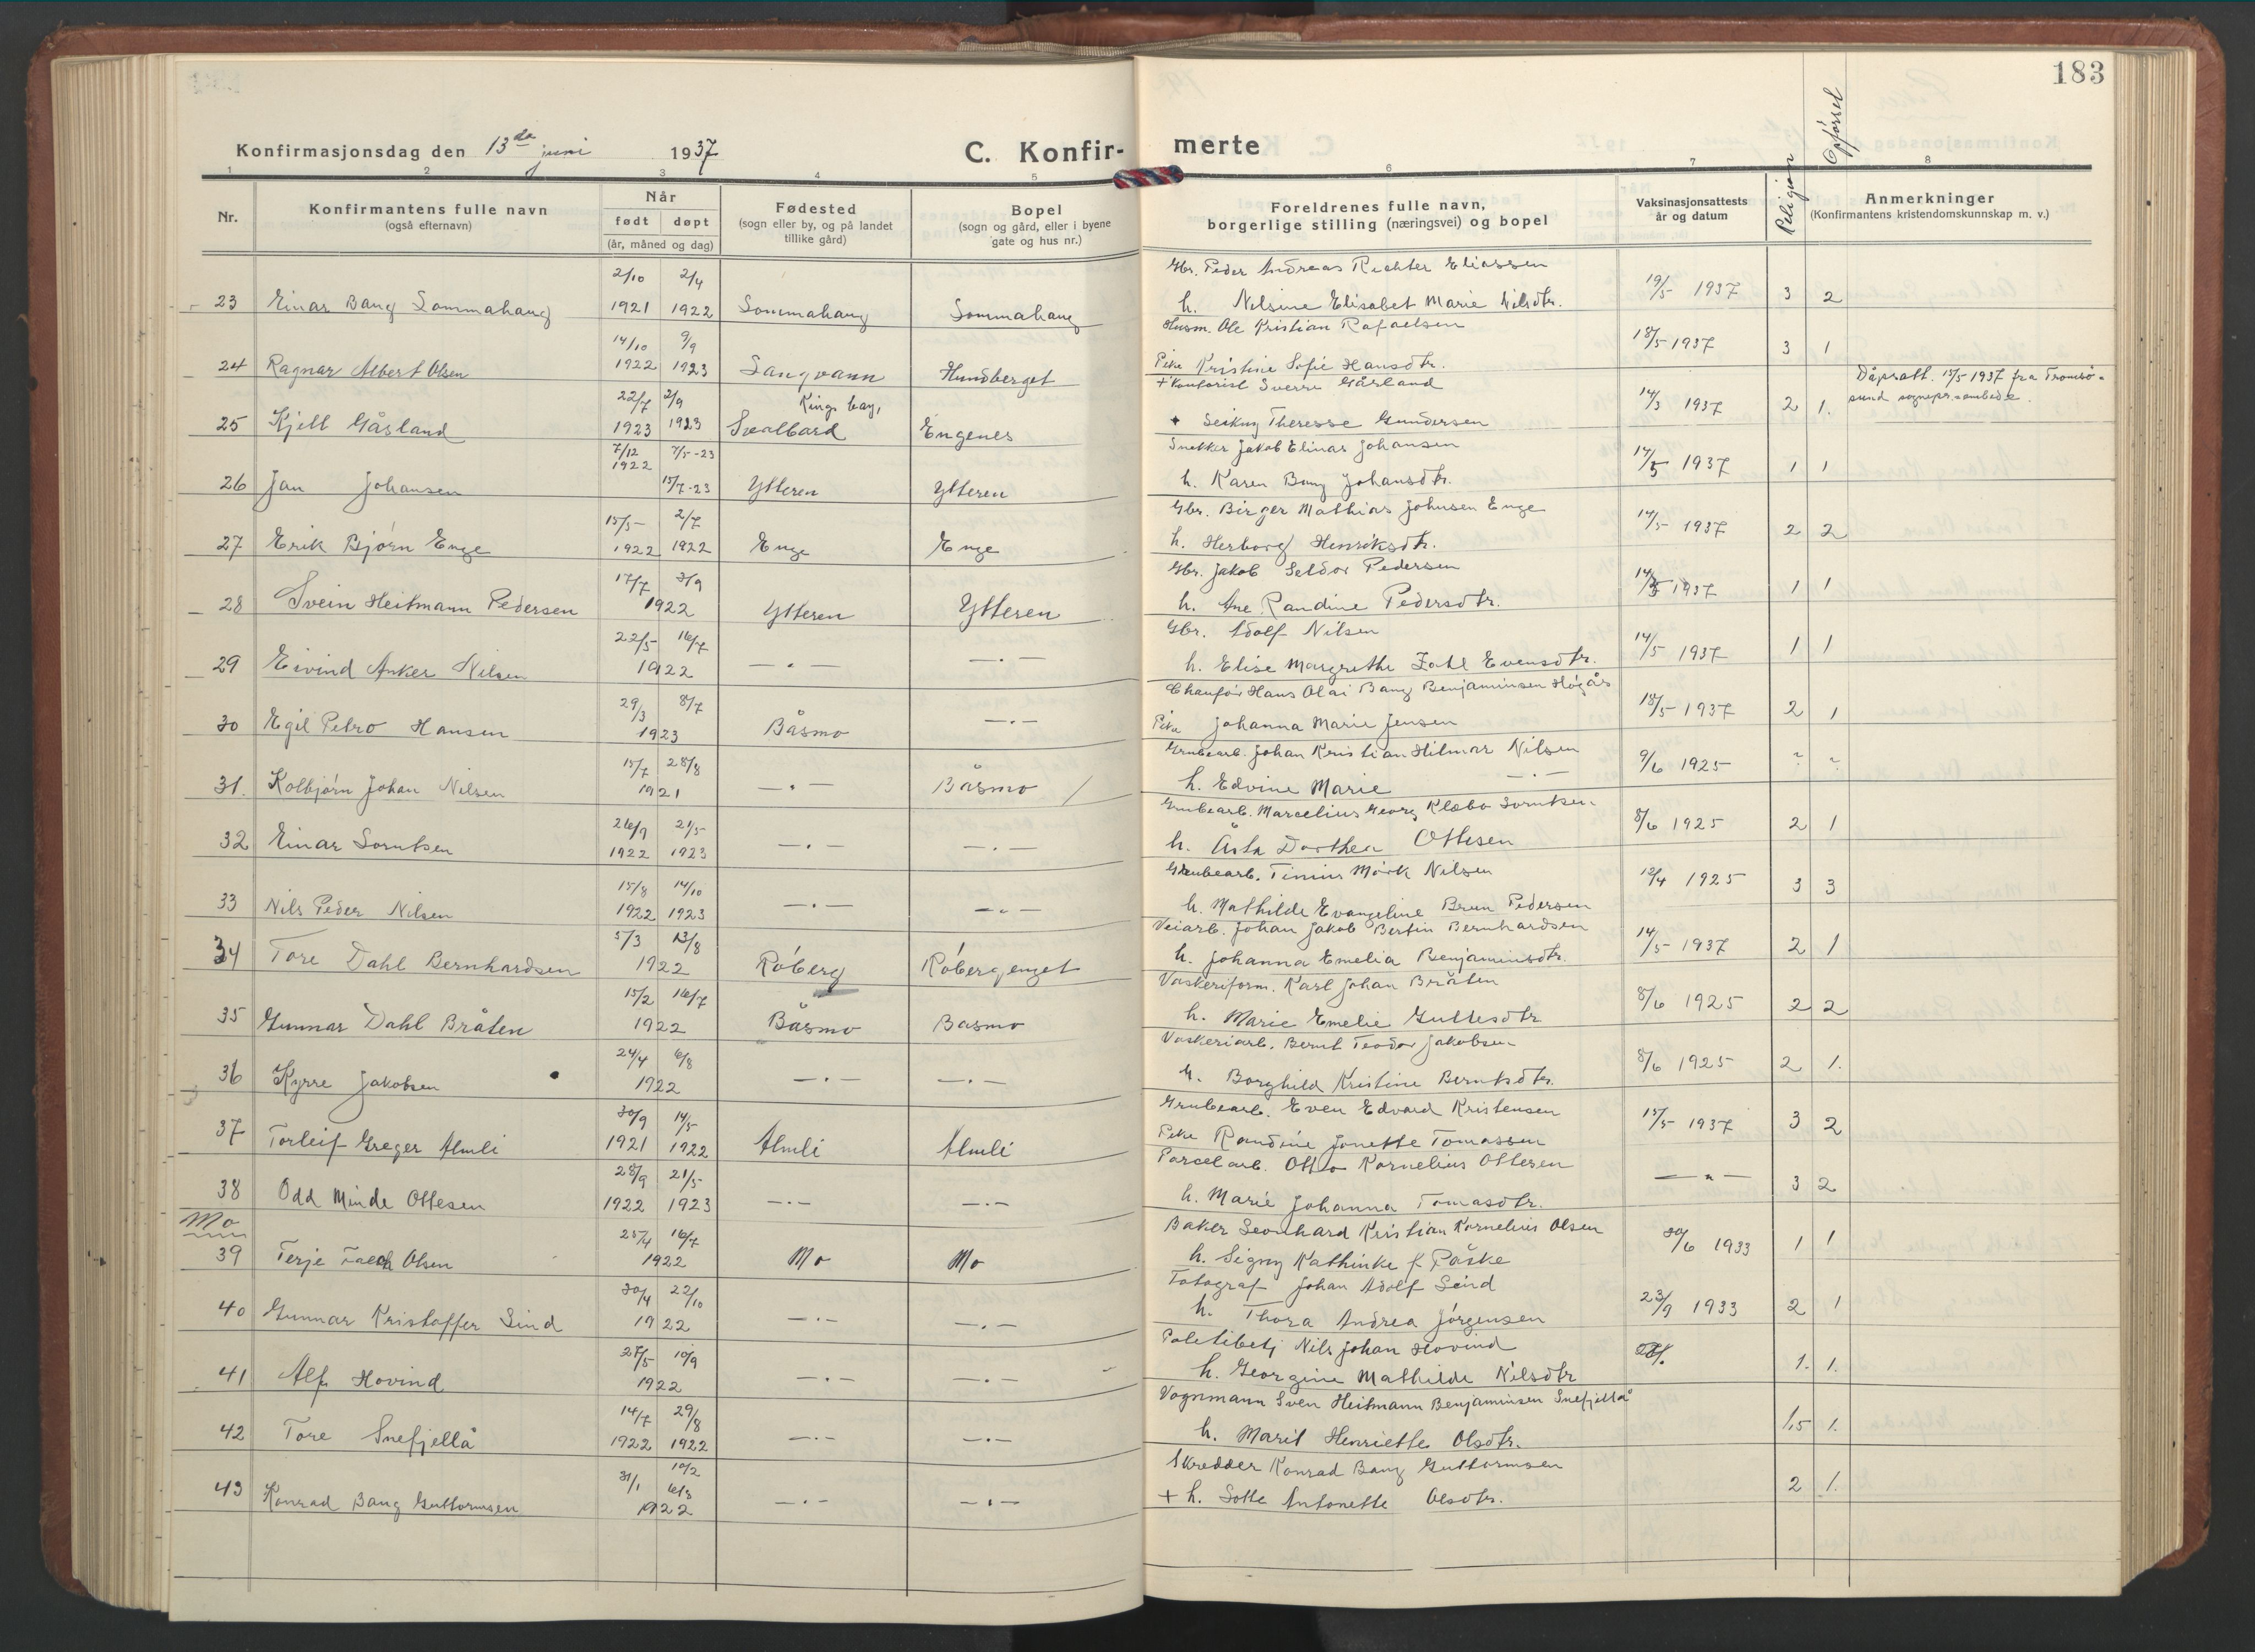 183
Konfirmasjonsdag den 13de juni 1937
C. Konfir-
merte
1 2 3 4 5 6 7 8
Nr.
Konfirmantens fulle navn
(også efternavn)
Når
født døpt
(år, måned og dag)
Fødested
(sogn eller by, og på landet
tillike gård)
Bopel
(sogn og gård, eller i byene
gate og hus nr.)
Foreldrenes fulle navn,
borgerlige stilling (næringsvei) og bopel
Vaksinasjonsattests
år og datum
Religion
Opførsel
Anmerkninger
(Konfirmantens kristendomskunnskap m. v.)
2/10 2/4 Gbr. Peder Andreas Richter Eliassen
23 Einar Bang Sommahaug 1921 1922 Sommahaug Sommahaug h. Nilsine Elisabet Marie Nilsdtr. 19/5 1937 3 2
14/10 9/9 Husm. Ole Kristian Rafaelsen
24 Ragnar Albert Olsen 1922 1923 Langvann Hundberget Pike Kristine Sofie Hansdtr. 18/5 1937 3 1
22/7 2/9 Kings bay, + Kontorist Sverre Gåsland Dåpsatt. 15/5 1937 fra Tromsø-
25 Kjell Gåsland 1923 1923 Svalbard Engenes + Theresse Gundersen 14/3 1937 2 1. sund sognepr.embede.
7/12 7/5-23 Snekker Jakob Elinar Johansen
1922
26 Jan Johansen 15/7-23 Ytteren Ytteren h. Karen Bang Johansdtr. 14/5 1937 1 1
15/5- 2/7 Gbr. Birger Mathias Johnsen Enge
27 Erik Bjørn Enge 1922 1922 Enge Enge h. Herborg Henriksdtr. 14/5 1937 2 2
17/7 3/9 Gbr. Jakob Seldor Pedersen
28 Svein Heitmann Pedersen 1922 Ytteren Ytteren h. Ane Randine Pedersdtr. 14/5 1937 1 1
22/5 16/7 Gbr. Adolf Nilsen
29 Eivind Anker Nilsen 1922 — " — — " — h. Elise Margrethe Zahl Evensdtr. 14/5 1937 1 1
29/3 8/7 Chauför Hans Olai Bang Benjaminsen Høgås
30 Egil Petro Hansen 1923 Båsmo — " — Pike Johanna Marie Jensen 18/5 1937 2 1
15/7 28/8 Grubearb. Johan Kristian Hilmar Nilsen
31. Kolbjørn Johan Nilsen 1921 — " — Båsmo / h. Edvine Marie — " — 9/6 1925 ? ?
26/9 21/5 Grubearb. Marcelius Georg Klæbo Sorntsen
32 Einar Sorntsen 1922 1923 — " — — " — h. Åsta Dorthea Ottesen 8/6 1925 2 1
15/8 14/10 Grubearb. Tinius Mørk Nilsen
33 Nils Peder Nilsen 1922 1923 — " — — " — h. Mathilde Evangeline Brun Pedersen 12/4 1925 3 3
5/3 13/8 Veiarb. Johan Jakob Bertin Bernhardsen
34 Tore Dahl Bernhardsen 1922 Røberg Røbergenget h. Johanna Emelia Benjaminsdtr. 14/5 1937 2 1
15/2 16/7 Vaskeriform. Karl Johan Bråten
35 Gunnar Dahl Bråten 1922 Båsmo Basmo h. Marie Emelie Gullesdtr 8/6 1925 2 2
24/4 6/8 Vaskeriarb. Bernt Teodor Jakobsen
36 Kyrre Jakobsen 1922 — " — — " — h. Borghild Kristine Berntsdtr. 8/6 1925 2 1.
30/9 14/5 Grubearb. Even Edvard Kristensen
37 Torleif Greger Almli 1921 1922 Almli Almli Pike Randine Jonette Tomassen 15/5 1937 3 2
28/9 21/5 Parcelarb. Otto Kornelius Ottesen
38 Odd Minde Ottesen 1922 1923 — " — — " — h. Marie Johanna Tomasdtr. — " — 3 2
Mo
25/4 16/7 Baker Leonhard Kristian Kornelius Olsen
39 Terje Olsen 1922 Mo Mo h. Signy Kathinke f. Påske 30/6 1933 1 1
30/4 22/10 Fotograf Johan Adolf Lind
40 Gunnar Kristoffer Lind 1922 — " — — " — h. Thora Andrea Jørgensen 23/9 1933 2 1
27/5 10/9 Politibetj Nils Johan Hovind
41 Alf Hovind 1922 — " — — " — h. Georgine Mathilde Nilsdtr 1. 1.
14/7 29/8 Vognmann Sven Heitmann Benjaminsen Snefjellå
42 Tore Snefjellå 1922 1922 — " — — " — h. Marit Henriette Olsdtr. 1,5 1.
31/1 10/2 6/3 Skredder Konrad Bang Guttormsen
43 Konrad Bang Guttormsen 1922 — " — — " — + h. Lotte Antonette Olsdtr. 2 1.